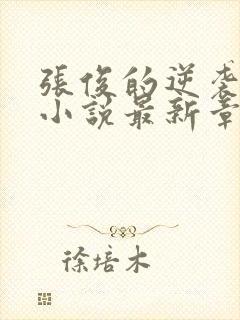 張俊的逆袭
小說最新章
徐培木